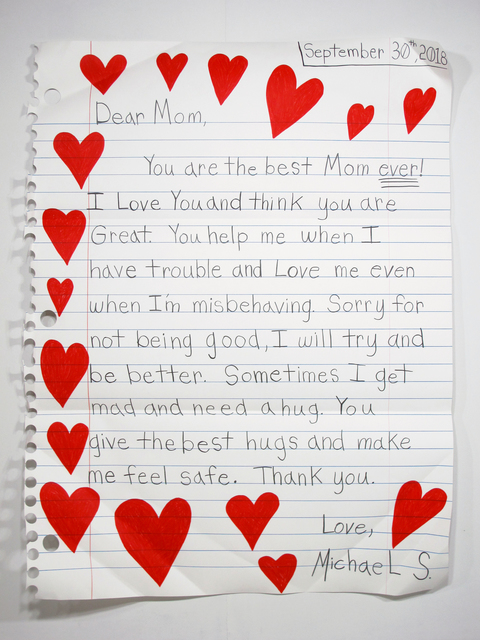 September 30th, 2018
Dear Mom,
You are the best Mom ever!
I Love You and think you are
Great. You help me when I
have trouble and Love me even
when I'm misbehaving. Sorry for
not being good, I will try and
be better. Sometimes I get
mad and need a hug. You
give the best hugs and make
me feel safe. Thank you.
Love,
Michael S.